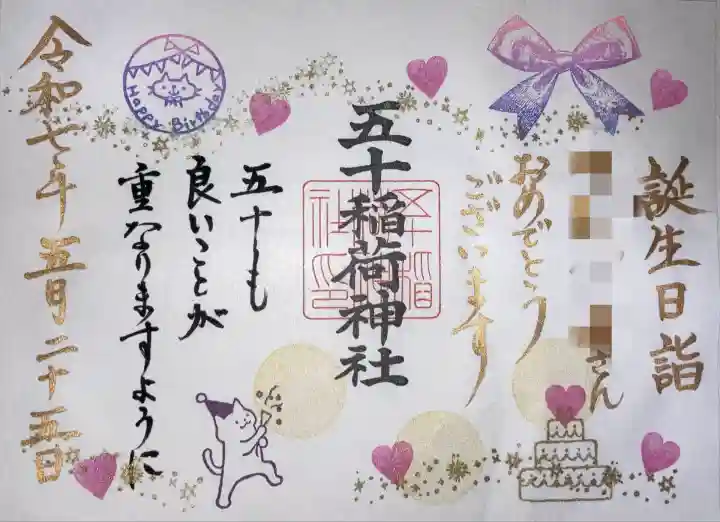 誕生日詣
さん
おめでとう
ございます
五十稲荷神社
五十稲
社印
五十も
良いことが
重なりますように
Happy Birthday
令和七年 五月二十五日